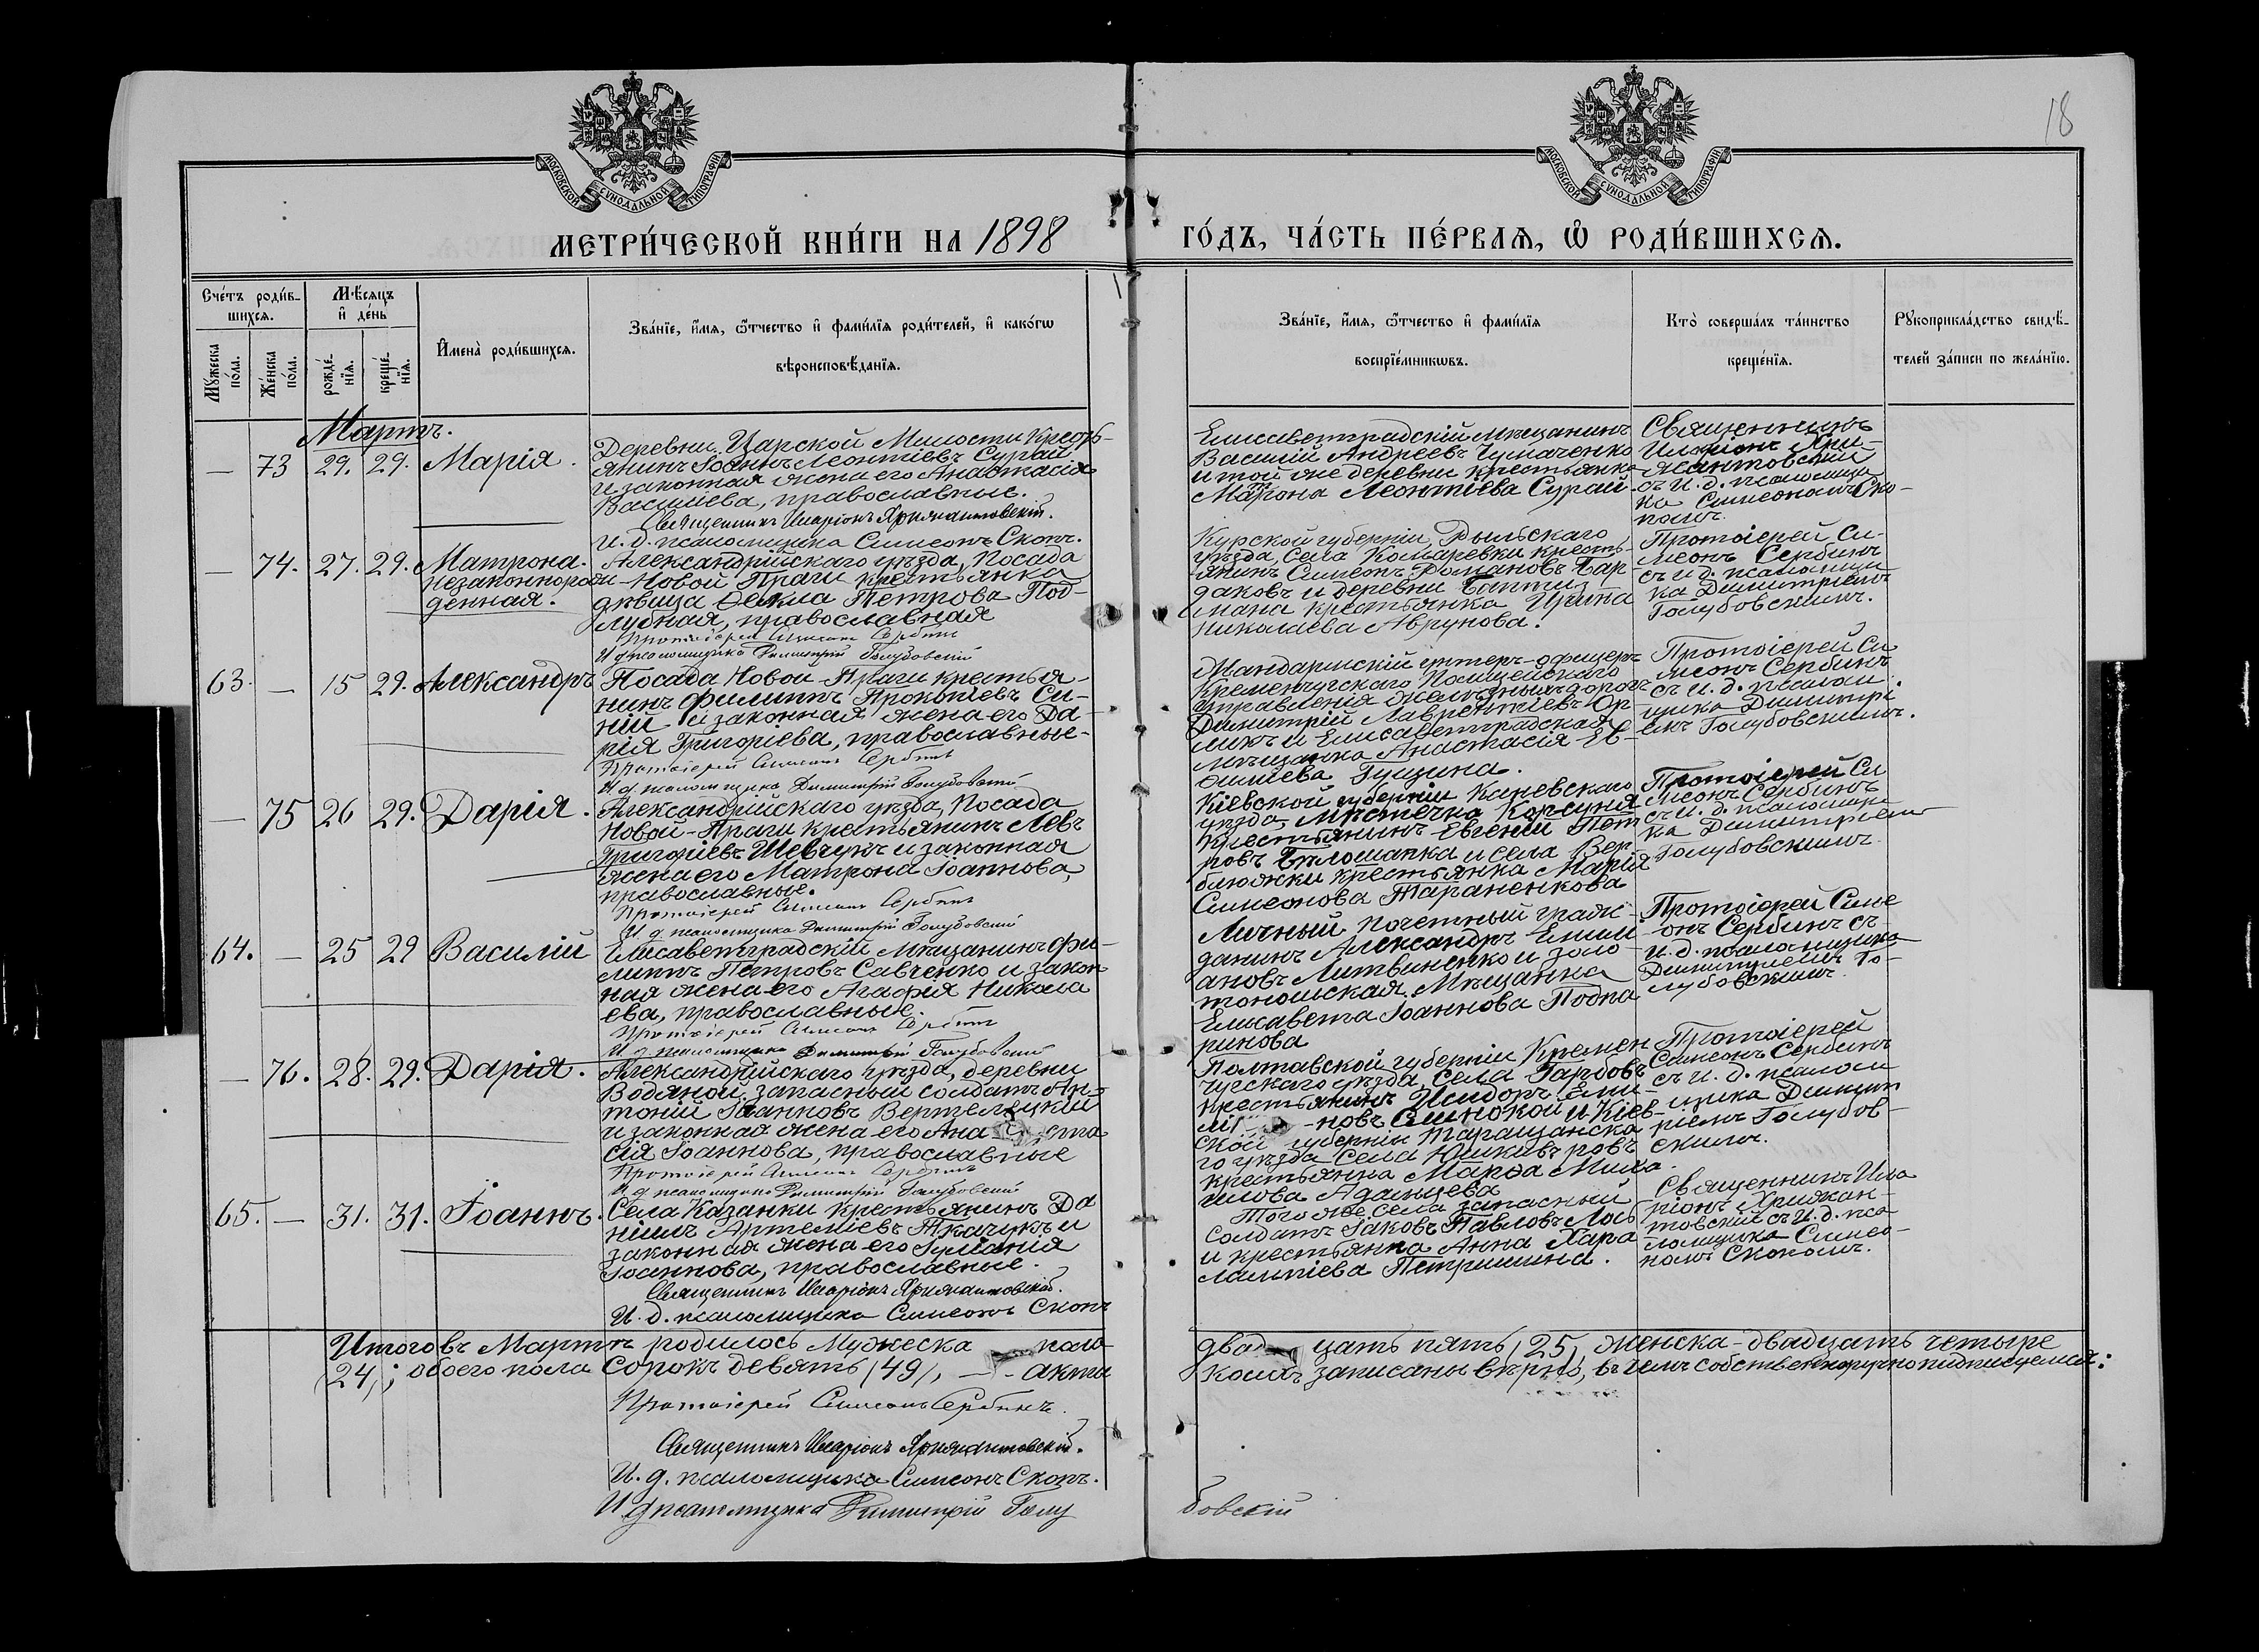 18
МОСКОВСКОЙ СѴНОДАЛЬНОЙ ТИПОГРАФІИ
МОСКОВСКОЙ СѴНОДАЛЬНОЙ ТИПОГРАФІИ
МЕТРИ́ЧЕСКОЙ КНИ́ГИ НА 1898 ГО́ДЪ, ЧА́СТЬ ПЕ́РВАѦ, Ѽ РОДИ́ВШИХСѦ.
Сче́тъ роди́в-
шихсѧ.
Мꙋ́жеска по́ла.
Же́нска по́ла.
Мѣ́сѧцъ
и҆ де́нь
рожде́-
нїѧ.
креще́-
нїѧ.
И҆мена̀ роди́вшихсѧ.
Зва́нїе, и҆́мѧ, ѻ҆́тчество и҆ фами́лїѧ роди́телей, и҆ како́гѡ
вѣроисповѣ́данїѧ.
Зва́нїе, и҆́мѧ, ѻ҆́тчество и҆ фами́лїѧ
воспрїе́мникѡвъ.
Кто̀ соверша́лъ та́инство
креще́нїѧ.
Рꙋкоприкла́дство свидѣ́-
телей за́писи по жела́нїю.
Мартъ.
— 73 29. 29. Марія.
Деревни Царской Милости Кресть-
янинъ Іоаннъ Леонтіевъ Сурай
и законная жена его Анастасія
Василіева, православные.
Священникъ Иларіонъ Хрисантовскій.
И. д. псаломщика Симеонъ Скопъ.
Елисаветградскій мѣщанинъ
Василій Андреевъ Чумаченко
и той же деревни крестьянка
Матрона Леонтіева Сурай.
Священникъ
Иларіонъ Хри-
сантовскій
съ И. д. псаломщи
ка Симеономъ Ско-
помъ.
— 74. 27. 29. Матрона.
незаконнорож-
денная.
Александрійскаго уѣзда, Посада
Новой Праги крестьянка
дѣвица Ѳекла Петрова Под-
лубная, православная
Протоіерей Симеонъ Сербинъ
И д псаломщика Димитрій Голубовскій
Курской губерніи Рыльскаго
уѣзда, села Комаревки кресть-
янинъ Симеонъ Романовъ Бар-
даковъ и деревни
крестьянка Ирина
Николаева Аврунова.
Протоіерей Си-
меонъ Сербинъ
съ и д. псаломщи
ка Димитріемъ
Голубовскимъ.
63. — 15 29. Александръ
Посада Новой-Праги крестья-
нинъ Филиппъ Прокопіевъ Си-
ній и законная жена его Да-
рія Григоріева, православные-
Протоіерей Симеонъ Сербинъ
И д псаломщика Димитрій Голубовскій
унтеръ-офицеръ
Кременчугскаго Полицейскаго
Управленія желѣзныхъ дорогъ
Димитрій Лаврентіевъ Ор-
ликъ и Елисаветградская
мѣщанка Анастасія Ев-
Гущина.
Протоіерей Си
меонъ Сербинъ
съ И. д. псалом
щика Димитрі
емъ Голубовскимъ.
— 75 26 29. Дарія.
Александрійскаго уѣзда, Посада
Новой-Праги крестьянинъ Левъ
Григоріевъ Шевчукъ и законная
жена его Матрона Іоаннова,
православные.
Протоіерей Симеонъ Сербинъ
И д псаломщика Димитрій Голубовскій
Кіевской губерніи Каневскаго
уѣзда, мѣстечка Корсуня
Крестьянинъ Евгеній Пет
ровъ Бѣлошапка и села Вер-
блюжки крестьянка Марія
Симеонова Тараненкова
Протоіерей Си
меонъ Сербинъ
съ И. д. псаломщи
ка Димитріемъ
Голубовскимъ
64. — 25 29 Василій
Елисаветградскій мѣщанинъ Фи-
липпъ Петровъ Савченко и закон
ная жена его Агафія Никола
ева, православные.
Протоіерей Симеонъ Сербинъ
И д псаломщика Димитрій Голубовскій
Личный почетный граж-
данинъ Александръ Емили
ановъ Литвиненко и золо
тоношская мѣщанка
Елисавета Іоаннова Подпа
ринова
Протоіерей Симе
онъ Сербинъ съ
и. д. псаломщика
Димитріемъ Го-
лубовскимъ.
— 76. 28. 29. Дарія.
Александрійскаго уѣзда, деревни
Водяной запасный солдатъ Ан-
тоній Іоанновъ Вертелецкій
и законная жена его Ана ста
сія Іоаннова, православные
Протоіерей Симеонъ Сербинъ
И д псаломщика Димитрій Голубовскій
Полтавской губерніи Кремен
чугскаго уѣзда, села Гарбовъ
крестьянинъ Исидоръ Еми-
лі -новъ и Кіев-
ской губерніи Таращанска
го уѣзда села Юшкивъ ровъ
крестьянка Марѳа Миха
илова Аданцева
Протоіерей
Симеонъ Сербинъ
съ И. д. псалом
щика Димит
ріемъ Голубов-
скимъ.
65. — 31. 31. Іоаннъ.
Села Казанки крестьянинъ Да
ніилъ Артеміевъ Ткачукъ и
законная жена его Іуліанія
Іоаннова, православные.
Священникъ Иларіонъ Хрисантовскій.
И. д. псаломщика Симеонъ Скопъ
Того же села запасный
солдатъ Іаковъ Павловъ Лось
и крестьянка Анна Хара
лампіева Петришина.
Священникъ Ила
ріонъ Хрисан-
товскій съ И. д. пса
ломщика Симео-
номъ Скопомъ.
Итого въ Мартѣ родилось Мужеска пола двад цать пять /25/, женска - двадцать четыре
/24/; обоего пола сорокъ девять /49/, — - акты коихъ записаны вѣрно, въ чемъ собственноручно подписуемся:
Протоіерей Симеонъ Сербинъ.
Священникъ Иларіонъ Хрисантовскій.
И. д. псаломщика Симеонъ Скопъ.
И д псаломщика Димитрій Голу бовскій